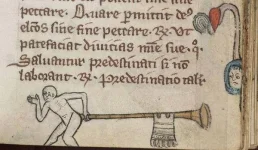 peccare. Quare permittit deus
electos sine fine peccare. R. Ut
patefaciat divicias mie sue. q̄
Salvantur predestinati si non
laborant. R. Predestinatio tal